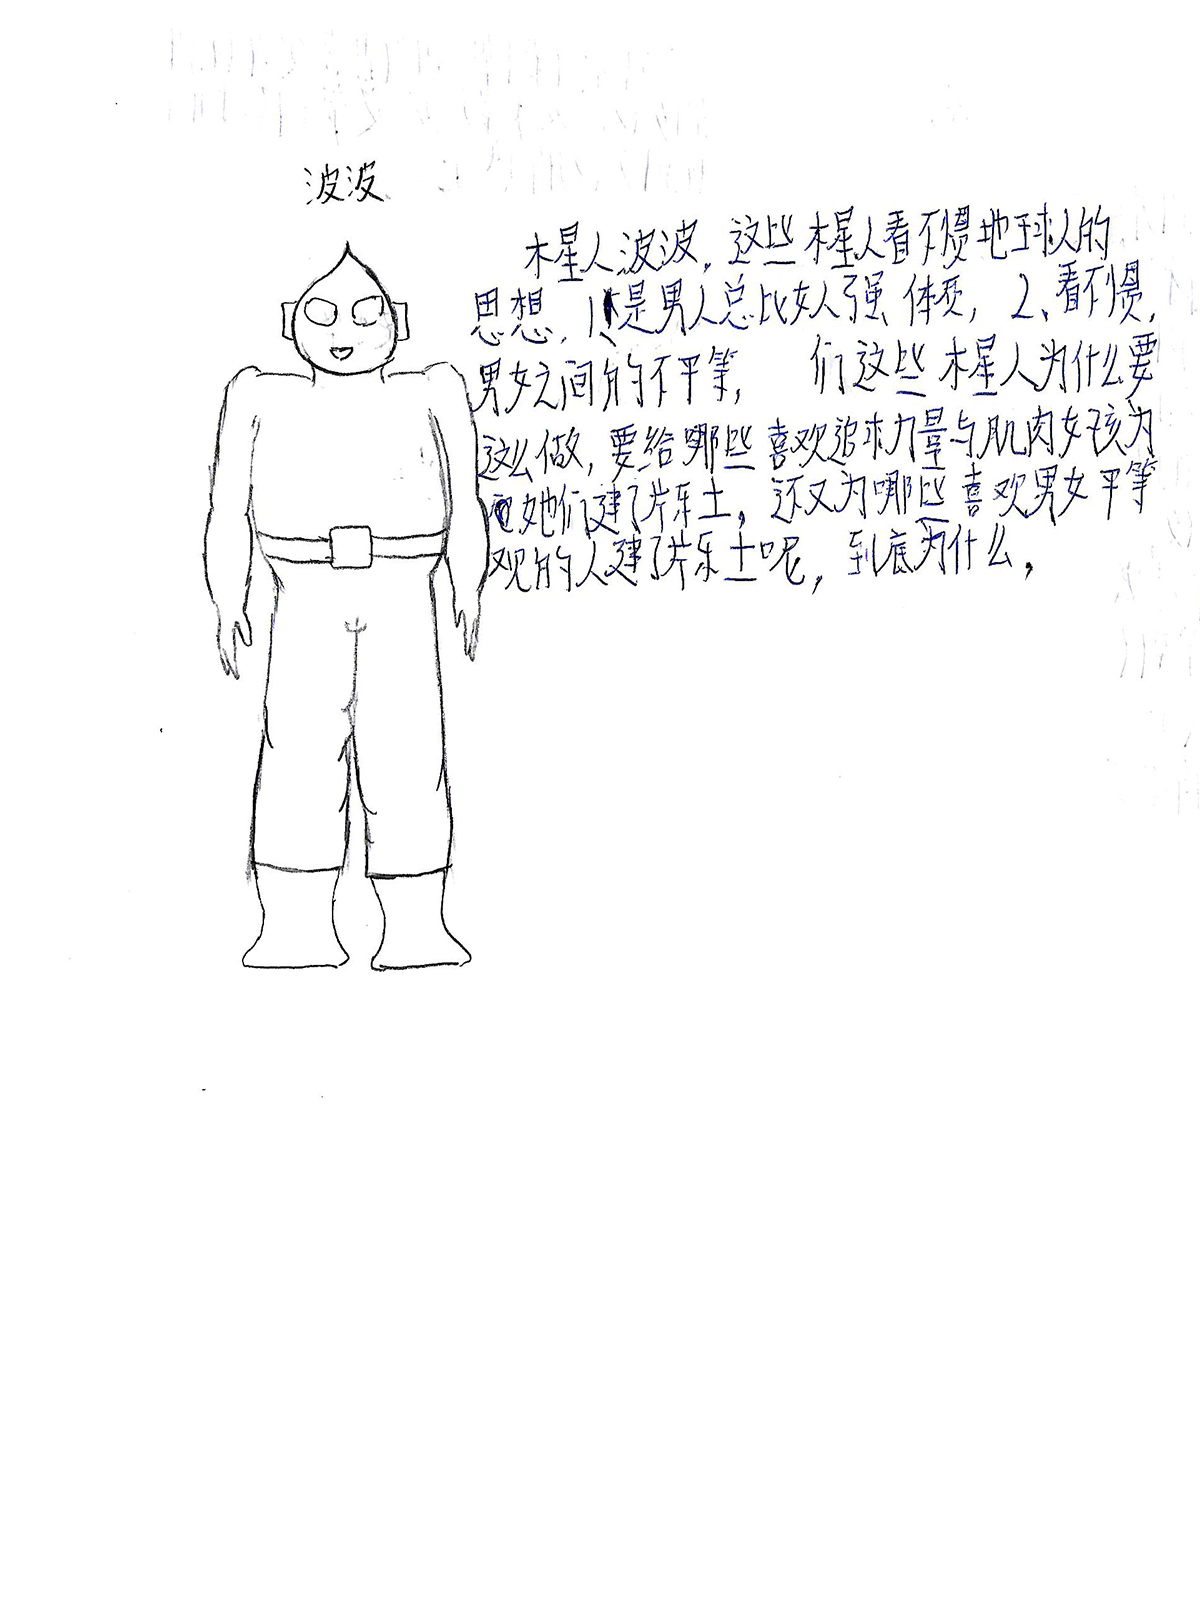 波波
木星人波波，这些木星人看不惯地球人的
思想，1、是男人总比女人强、体现，2、看不惯，
男女之间的不平等， 们这些木星人为什么要
这么做，要给哪些喜欢追求力量与肌肉女孩为
她们建了片乐土，还又为哪些喜欢男女平等
观的人建了片乐土呢，到底为什么，